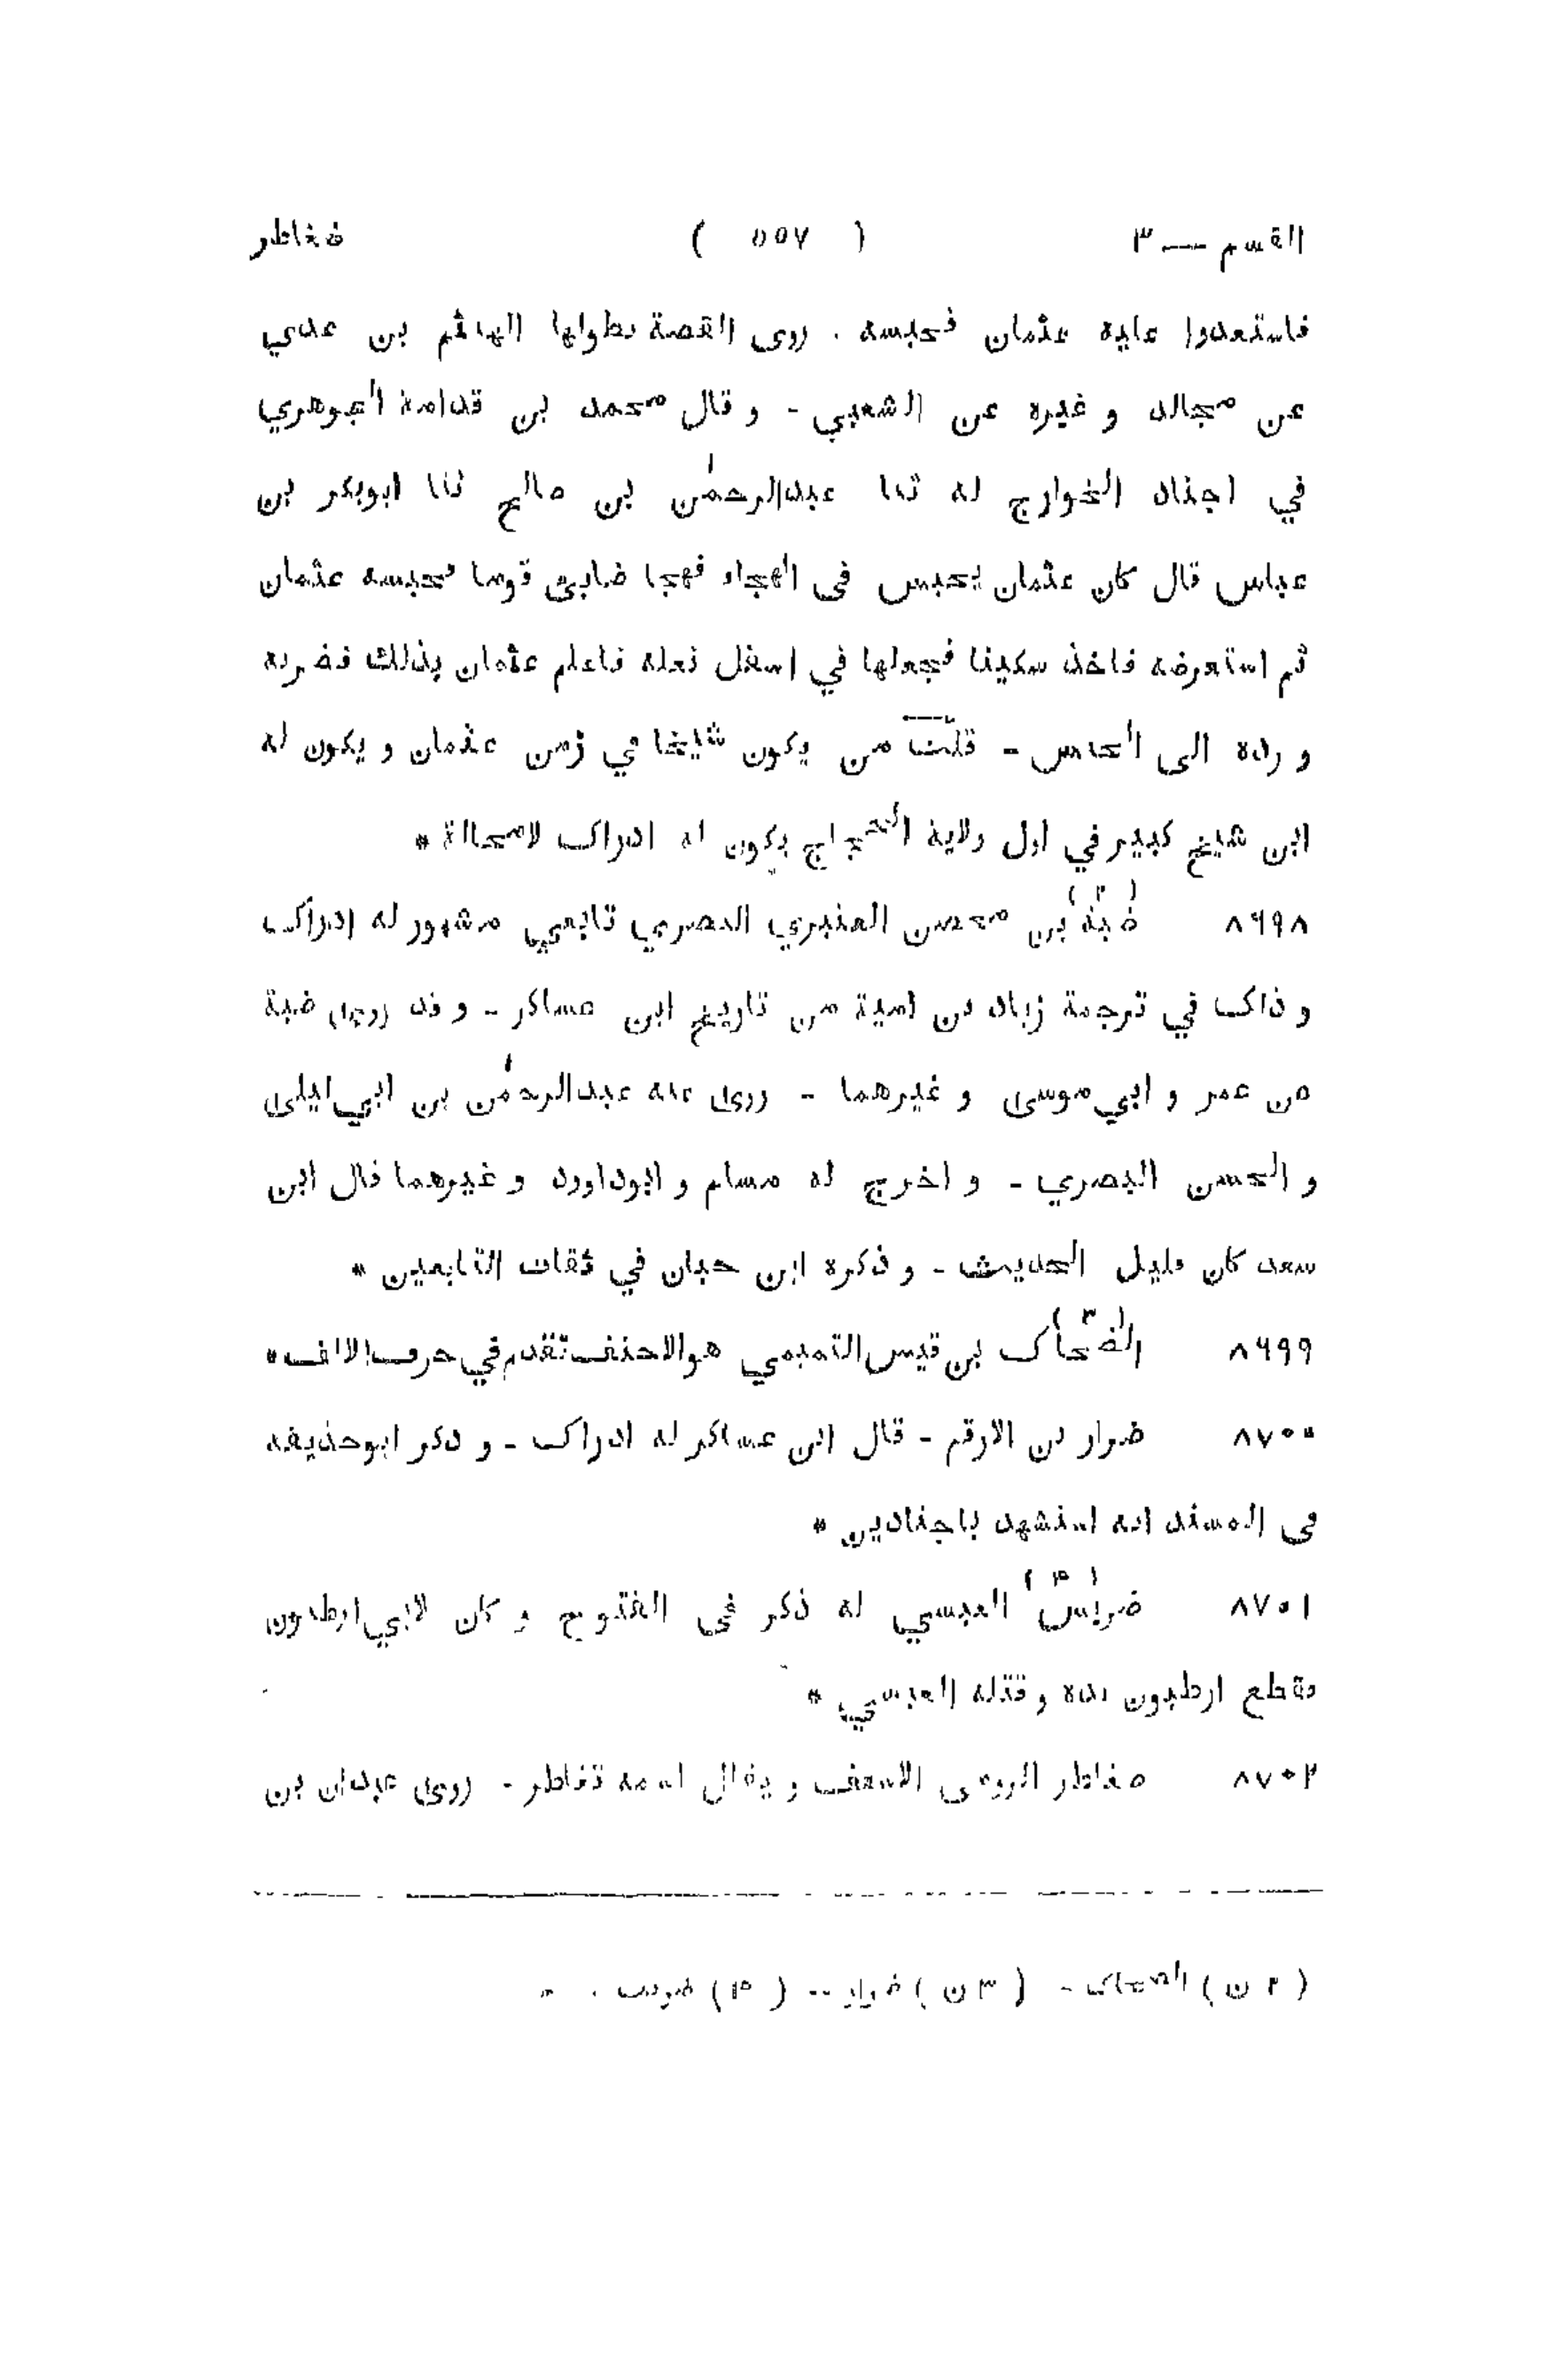 القسم — ٣ ( ٥٥٧ ) ضغاطر
فاستعدوا عليه عثمان فحبسه . روى القصة بطولها الهيثم بن عدي
عن مجالد و غيره عن الشعبي - و قال محمد بن قدامة الجوهري
في اخبار الخوارج له ثنا عبدالرحمٰن بن صالح ثنا ابوبكر بن
عياش قال كان عثمان يحبس فى الهجاء فهجا ضابئ قوما فحبسه عثمان
ثم استعرضه فاخذ سكينا فجعلها في اسفل نعله فاعلم عثمان بذلك فضربه
و رده الى الحبس - قلت من يكون شيخا في زمن عثمان و يكون له
ابن شيخ كبير في اول ولاية الحجاج يكون له ادراك لا محالة *
٨٦٩٨ ضبة (٢) بن محصن العنبري البصري تابعي مشهور له ادراك
و ذاك في ترجمة زياد بن امية من تاريخ ابن عساكر - و قد روى ضبة
من عمر و ابي موسى و غيرهما - روى عنه عبدالرحمٰن بن ابي ليلى
و الحسن البصري - و اخرج له مسلم و ابوداود و غيرهما قال ابن
سعد كان قليل الحديث - و ذكره ابن حبان في ثقات التابعين *
٨٦٩٩ الضحاك (٣) بن قيس التميمي هو الاحنف تقدم في حرف الالف *
٨٧٠٠ ضرار بن الارقم - قال ابن عساكر له ادراك - و ذكر ابوحذيفه
فى المسند انه استشهد باجنادين *
٨٧٠١ ضريس (٤) العبسي له ذكر فى الفتوح و كان لابي ارطبون
فقطع ارطبون يده و قتله العبسي *
٨٧٠٢ ضغاطر الرومى الاسقف و يقال اسمه تغاطر - روى عبدان بن
( ٢ ن ) الضحاك - ( ٣ ن ) ضرار -- ( ٤ )